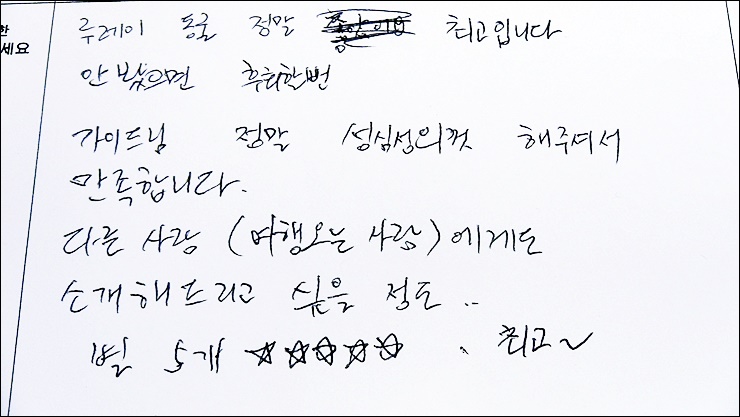 한
세요
루레이 동굴 정말 최고입니다
안 봤으면 후회할번
가이드님 정말 성심성의껏 해주셔서
만족합니다.
다른 사람 (여행오는 사람)에게도
소개해드리고 싶을 정도..
별 5개 ☆☆☆☆☆. 최고~